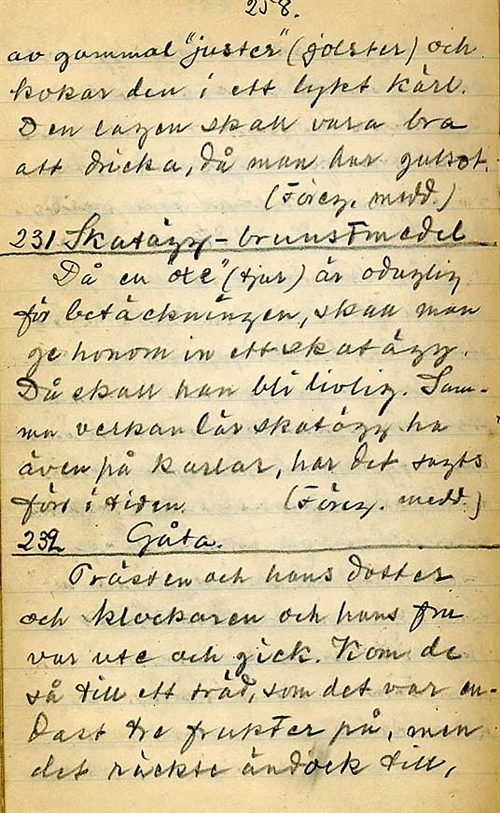 258.
av gammal "juster" (jolster) och
kokar den i ett lykt kärl.
Den lagen skall vara bra
att dricka, då man har gulsot.
(Föreg. medd.)
231 Skatägg – brunstmedel
Då en "oxe" (tjur) är oduglig
för betäckningen, skall man
ge honom in ett skatägg.
Då skall han bli livlig. Sam-
ma verkan lär skatägg ha
även på karlar, har det sagts
förr i tiden. (Föreg. medd.)
232 Gåta.
Prästen och hans dotter
och klockaren och hans fru
var ute och gick. Kom de
så till ett träd, som det var en-
dast tre frukter på, men
det räckte ändock till,